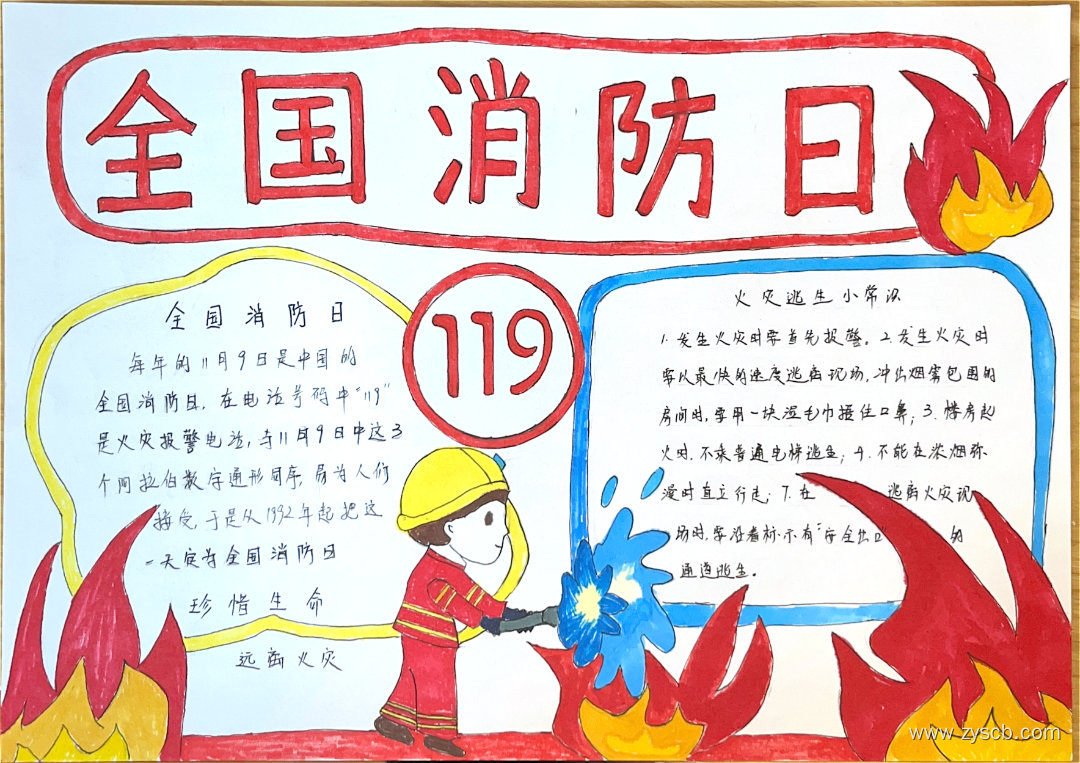 全国消防日
119
全国消防日
每年的11月9日是中国的
全国消防日，在电话号码中"119"
是火灾报警电话，与11月9日中这3
个阿拉伯数字通形同序，易为人们
接受，于是从1992年起把这
一天定为全国消防日
珍惜生命
远离火灾
火灾逃生小常识
1. 发生火灾时要首先报警。2. 发生火灾时
要以最快的速度逃离现场，冲出烟雾包围的
房间时，要用一块湿毛巾捂住口鼻；3. 楼房起
火时，不乘普通电梯逃生；4. 不能在浓烟弥
漫时直立行走；7. 在 逃离火灾现
场时，要沿着标示有"安全出口" 的
通道逃生。
www.zyscb.com